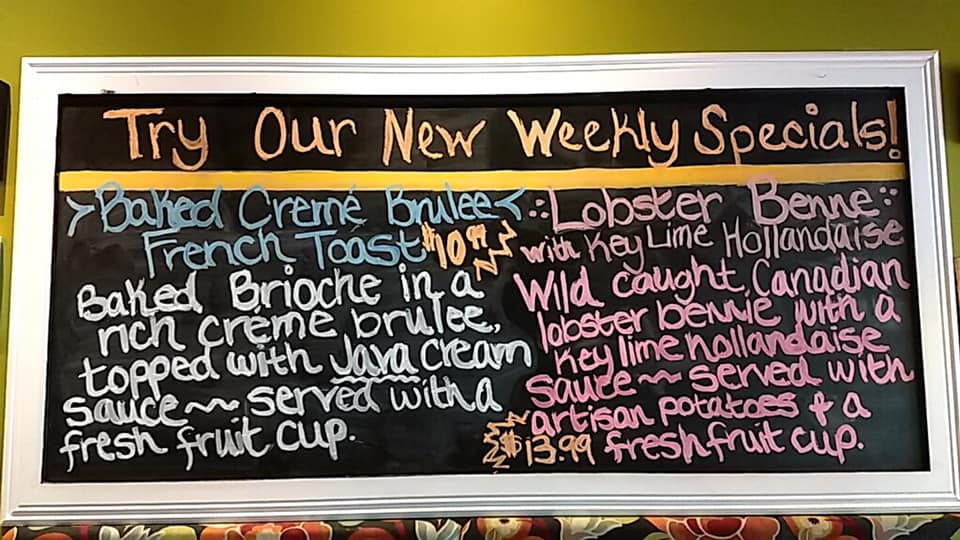 Try Our New Weekly Specials!
>Baked Cremé Brulee<
French Toast $10.99
Baked Brioche in a
rich créme brulee,
topped with Java cream
sauce ~~ served with a
fresh fruit cup.
::Lobster Benne::
with Key Lime Hollandaise
Wild caught, Canadian
lobster bennie with a
key lime hollandaise
sauce ~~ served with
artisan potatoes & a
$13.99 fresh fruit cup.